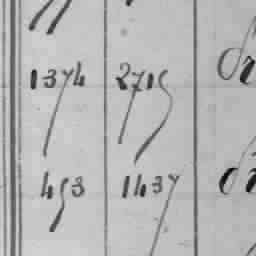 1374 2715
453 1437